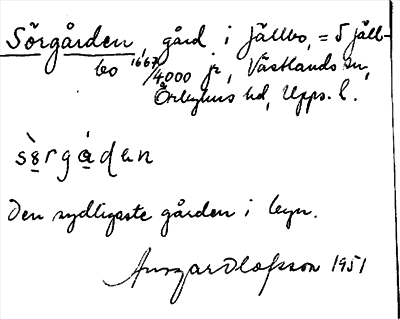 Sörgården, gård i Fällbo, = 5 Fäll-
bo 1667/4000 fr, Västlands sn,
Örbyhus hd, Upps. l.
sö̀rgá̀dan
Den sydligaste gården i byn.
Ansgar Olofsson 1951